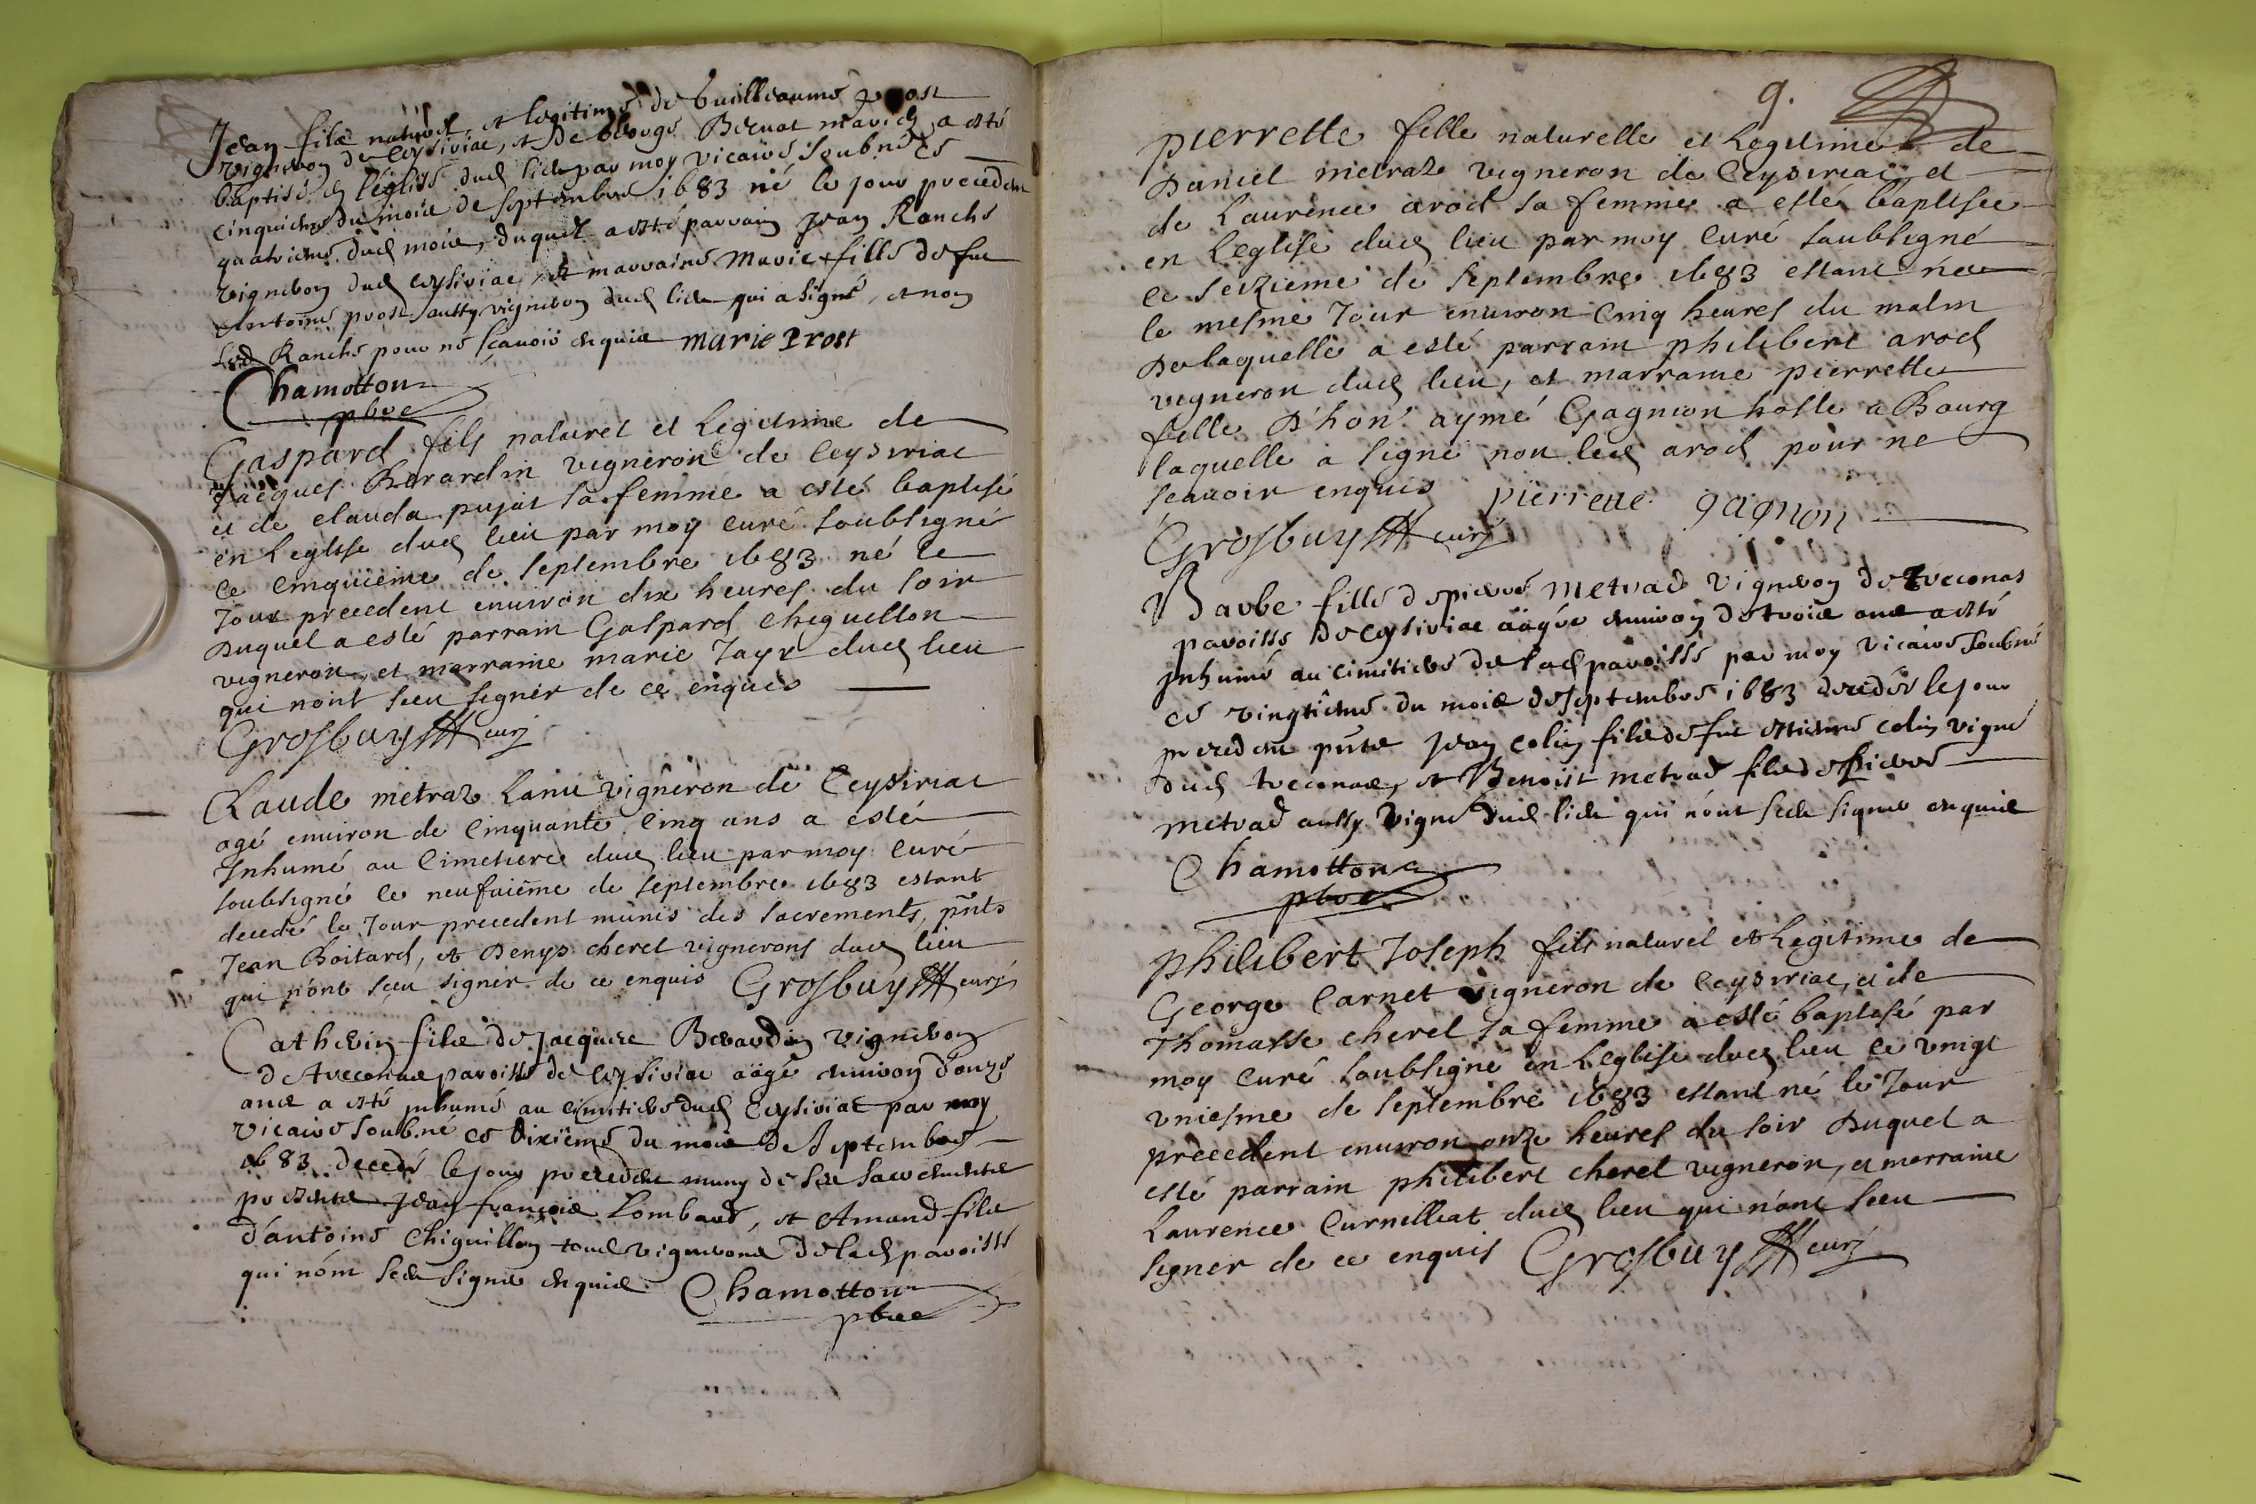 Jean fils naturel et legitime de Guilleaume prost
vigneron de Ceysiriac, et De Bernat mariés a esté
baptisé en l'église dud lieu par moy vicaire soubné ce
cinquième du mois de septembre 1683 né le jour precedent
quatrieme dud mois, duquel a esté parrain Jean Ranche
vigneron dud Ceysiriac et marraine Marie fille de feu
Antoine prost aussy vigneron dud lieu qui a signé, et non
led Ranche pour ne sçavoir enquis marie Prost
Chamotton
pbre
Gaspard fils naturel et Legitime de
Jacques Berardin vigneron de Ceysiriac
et de Clauda pujat sa femme a esté baptisé
en Leglise dud lieu par moy curé soubsigné
ce cinquieme de septembre 1683 né le
Jour precedent environ dix heures du soir
Duquel a esté parrain Gaspard Chiquellon
vigneron, et marraine marie Tayr dud lieu
qui nont sceu signer de ce enquis
Grosbuy curé
Claude metraz Lainé vigneron de Ceysiriac
agé environ de Cinquante Cinq ans a esté
Inhumé au Cimetiere dud lieu par moy Curé
soubsigné ce neufuieme de septembre 1683 estant
decedé le Jour precedent munis des sacrements, pnts
Jean Boitard, et Denys cherel vignerons dud lieu
qui n'ont sceu signer de ce enquis Grosbuy curé
Catherin fils de Jacques Berardin vigneron
de treconas paroisse de Ceysiriac aagé environ d'onze
ans a esté inhumé au cimitiere dud Ceysiriac par moy
vicaire soub.né ce dixième du mois de Septembre
1683 decedé le jour precedent muny de ses sacrements
presents Jean françois Lombard, et Amand fils
d'antoine Chiquillon tous vignerons de lad paroisse
qui n'ont sceu signer enquis Chamotton
pbre
9.
pierrette fille naturelle et Legitime de
Daniel metraz vigneron de Ceysiriac et
de Laurence arod sa femme a esté baptisée
en Leglise dud lieu par moy curé soubsigné
ce seizieme de septembre 1683 estant née
le mesme Jour environ cinq heures du matin
De laquelle a esté parrain philibert arod
vigneron dud lieu, et marraine pierrette
fille D'hon. aymé Gagnion hoste a Bourg
laquelle a signé non led arod pour ne
scauoir enquis pierrette gagnon
Grosbuy curé
Barbe fille de pierre Metrad vigneron de treconas
paroisse de Ceysiriac aagée environ de trois ans a esté
inhumé au cimitiere de lad paroisse par moy vicaire soubné
ce vingtieme du mois de septembre 1683 decedée le jour
precedent pnts Jean Colin fils de feu estienne colin vigné
dud treconas, et Benoist metrad fils de pierre
metrad aussy vigné dud lieu qui n'ont sceu signer enquis
Chamotton
pbre
philibert Joseph fils naturel et Legitime de
George Carnet vigneron de Ceysiriac, et de
Thomasse cherel sa femme a esté baptisé par
moy curé soubsigné en Leglise dud lieu ce vingt
vniesme de septembre 1683 estant né le Jour
precedent environ onze heures du soir Duquel a
esté parrain philibert cherel vigneron, et marraine
Laurence Curnilliat dud lieu qui n'ont sceu
signer de ce enquis Grosbuy curé